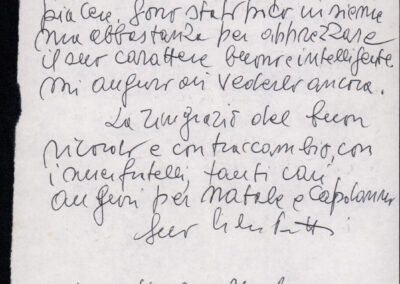 piacere, sono stato poco insieme
ma abbastanza per apprezzare
il suo carattere buono e intelligente.
mi auguro di vederlo ancora.
La ringrazio del buon
ricordo e contraccambio, con
i miei fratelli, tanti cari
auguri per Natale e Capodanno
suo